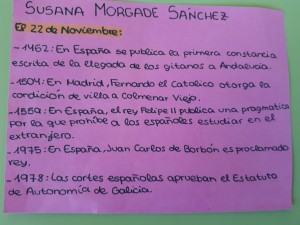 SUSANA MORGADE SÁNCHEZ
El 22 de Noviembre:
-1462: En España se publica la primera constancia
escrita de la llegada de los gitanos a Andalucía.
-1504: En Madrid, Fernando el Católico otorga la
condición de villa a Colmenar Viejo.
-1559: En España, el rey Felipe II publica una pragmática
por la que prohíbe a los españoles estudiar en el
extranjero.
-1975: En España, Juan Carlos de Borbón es proclamado
rey.
-1978: Las cortes españolas aprueban el Estatuto
de Autonomía de Galicia.